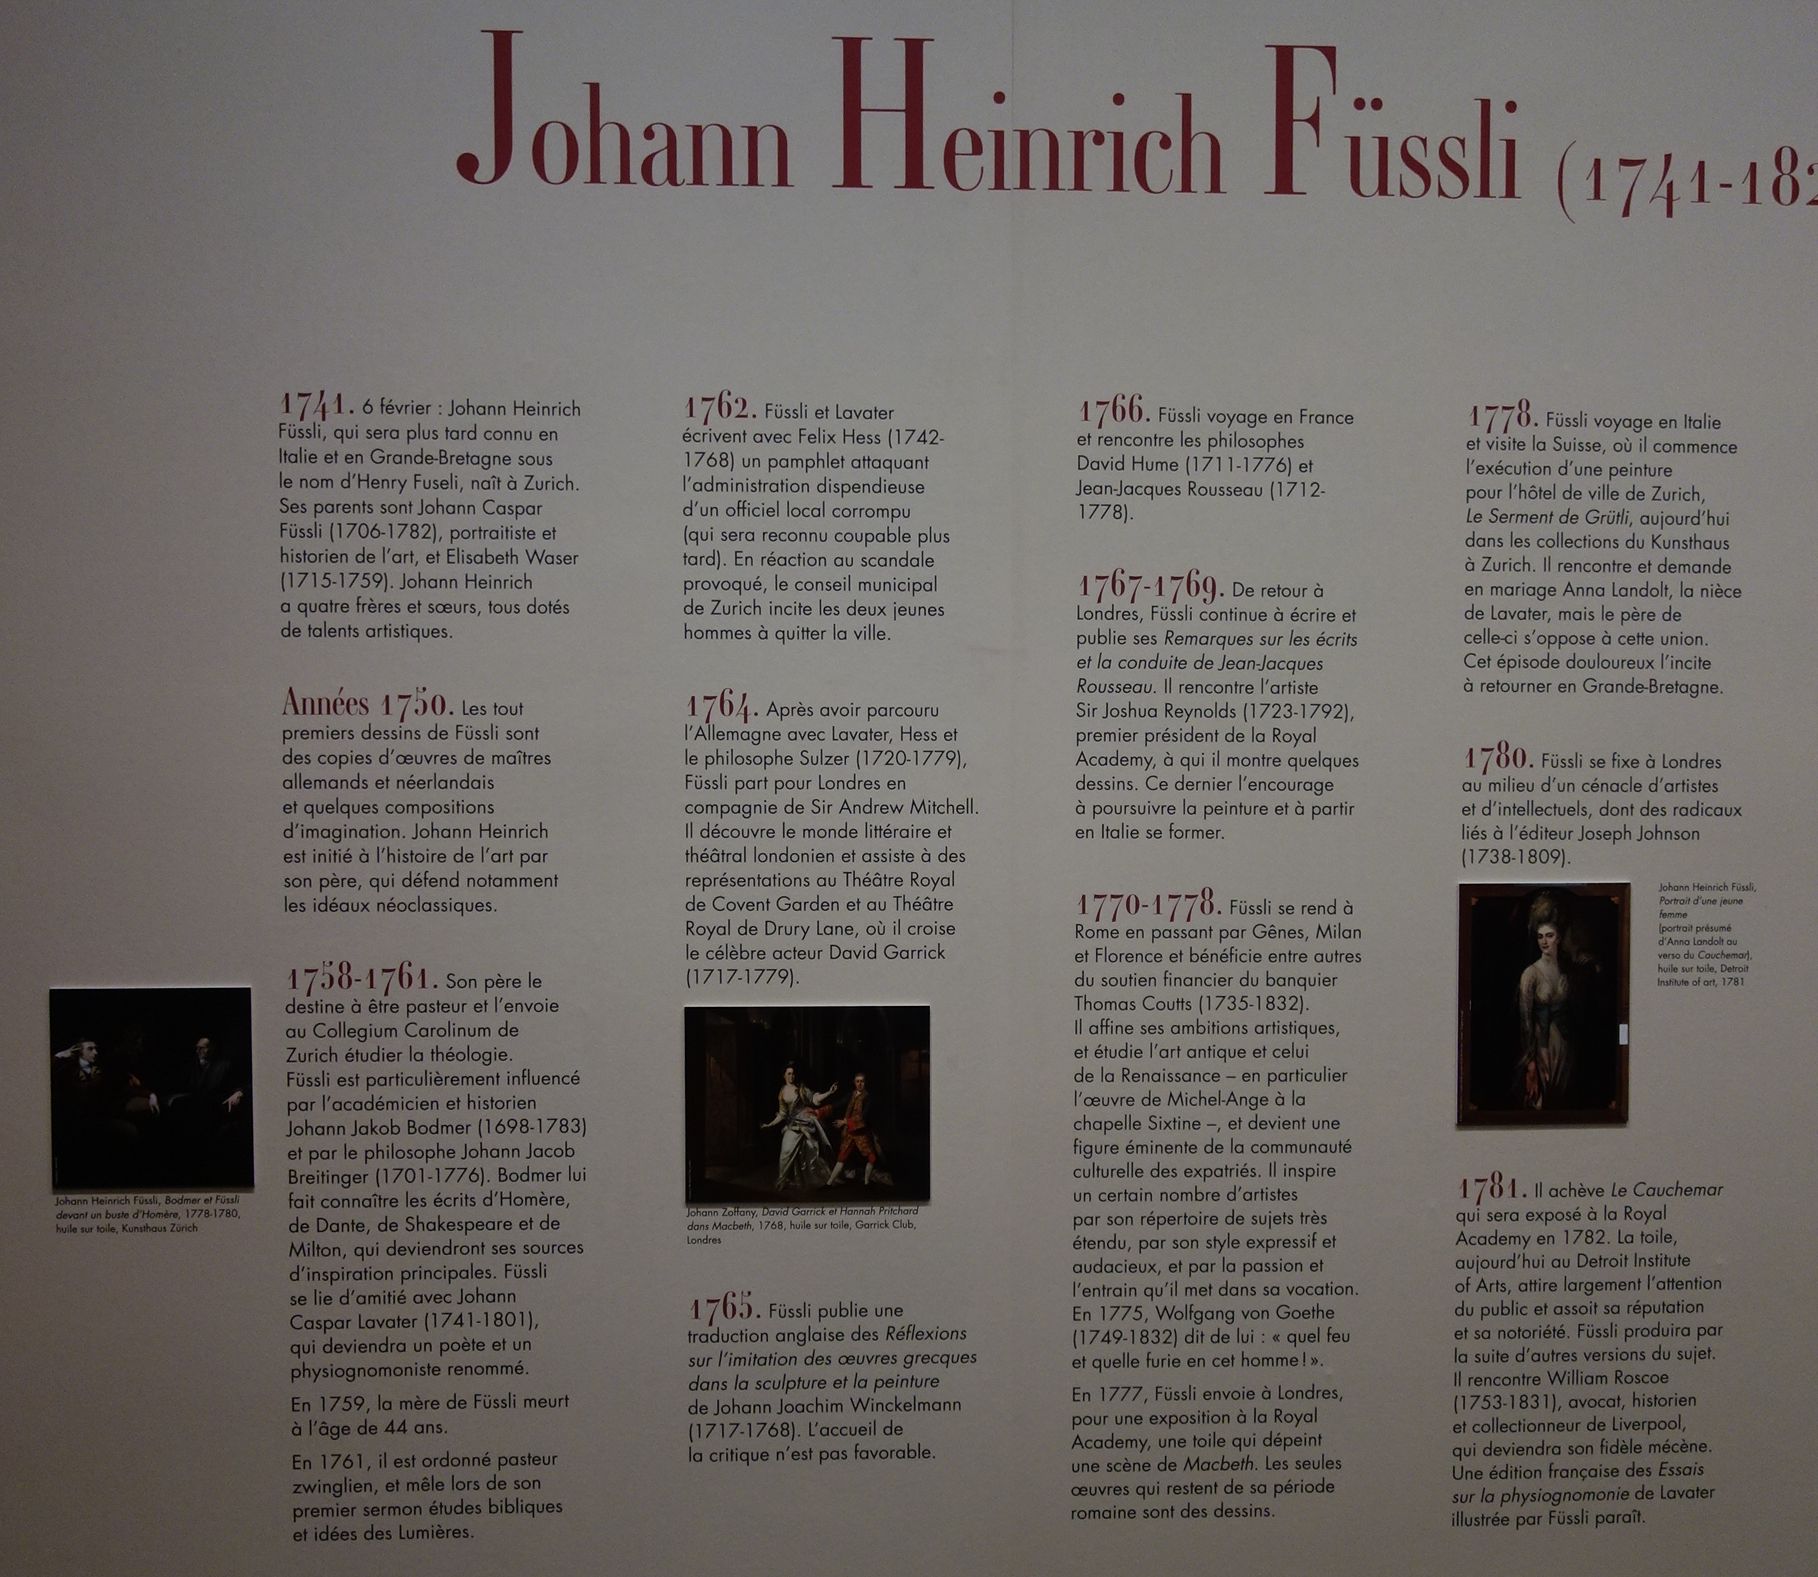 Johann Heinrich Füssli (1741-182
1741. 6 février : Johann Heinrich
Füssli, qui sera plus tard connu en
Italie et en Grande-Bretagne sous
le nom d'Henry Fuseli, naît à Zurich.
Ses parents sont Johann Caspar
Füssli (1706-1782), portraitiste et
historien de l'art, et Elisabeth Waser
(1715-1759). Johann Heinrich
a quatre frères et sœurs, tous dotés
de talents artistiques.
Années 1750. Les tout
premiers dessins de Füssli sont
des copies d'œuvres de maîtres
allemands et néerlandais
et quelques compositions
d'imagination. Johann Heinrich
est initié à l'histoire de l'art par
son père, qui défend notamment
les idéaux néoclassiques.
1758-1761. Son père le
destine à être pasteur et l'envoie
au Collegium Carolinum de
Zurich étudier la théologie.
Füssli est particulièrement influencé
par l'académicien et historien
Johann Jakob Bodmer (1698-1783)
et par le philosophe Johann Jacob
Breitinger (1701-1776). Bodmer lui
fait connaître les écrits d'Homère,
de Dante, de Shakespeare et de
Milton, qui deviendront ses sources
d'inspiration principales. Füssli
se lie d'amitié avec Johann
Caspar Lavater (1741-1801),
qui deviendra un poète et un
physiognomoniste renommé.
En 1759, la mère de Füssli meurt
à l'âge de 44 ans.
En 1761, il est ordonné pasteur
zwinglien, et mêle lors de son
premier sermon études bibliques
et idées des Lumières.
Johann Heinrich Füssli, Bodmer et Füssli
devant un buste d'Homère, 1778-1780,
huile sur toile, Kunsthaus Zürich
1762. Füssli et Lavater
écrivent avec Felix Hess (1742-
1768) un pamphlet attaquant
l'administration dispendieuse
d'un officiel local corrompu
(qui sera reconnu coupable plus
tard). En réaction au scandale
provoqué, le conseil municipal
de Zurich incite les deux jeunes
hommes à quitter la ville.
1764. Après avoir parcouru
l'Allemagne avec Lavater, Hess et
le philosophe Sulzer (1720-1779),
Füssli part pour Londres en
compagnie de Sir Andrew Mitchell.
Il découvre le monde littéraire et
théâtral londonien et assiste à des
représentations au Théâtre Royal
de Covent Garden et au Théâtre
Royal de Drury Lane, où il croise
le célèbre acteur David Garrick
(1717-1779).
Johann Zoffany, David Garrick et Hannah Pritchard
dans Macbeth, 1768, huile sur toile, Garrick Club,
Londres
1765. Füssli publie une
traduction anglaise des Réflexions
sur l'imitation des œuvres grecques
dans la sculpture et la peinture
de Johann Joachim Winckelmann
(1717-1768). L'accueil de
la critique n'est pas favorable.
1766. Füssli voyage en France
et rencontre les philosophes
David Hume (1711-1776) et
Jean-Jacques Rousseau (1712-
1778).
1767-1769. De retour à
Londres, Füssli continue à écrire et
publie ses Remarques sur les écrits
et la conduite de Jean-Jacques
Rousseau. Il rencontre l'artiste
Sir Joshua Reynolds (1723-1792),
premier président de la Royal
Academy, à qui il montre quelques
dessins. Ce dernier l'encourage
à poursuivre la peinture et à partir
en Italie se former.
1770-1778. Füssli se rend à
Rome en passant par Gênes, Milan
et Florence et bénéficie entre autres
du soutien financier du banquier
Thomas Coutts (1735-1832).
Il affine ses ambitions artistiques,
et étudie l'art antique et celui
de la Renaissance – en particulier
l'œuvre de Michel-Ange à la
chapelle Sixtine –, et devient une
figure éminente de la communauté
culturelle des expatriés. Il inspire
un certain nombre d'artistes
par son répertoire de sujets très
étendu, par son style expressif et
audacieux, et par la passion et
l'entrain qu'il met dans sa vocation.
En 1775, Wolfgang von Goethe
(1749-1832) dit de lui : « quel feu
et quelle furie en cet homme ! ».
En 1777, Füssli envoie à Londres,
pour une exposition à la Royal
Academy, une toile qui dépeint
une scène de Macbeth. Les seules
œuvres qui restent de sa période
romaine sont des dessins.
1778. Füssli voyage en Italie
et visite la Suisse, où il commence
l'exécution d'une peinture
pour l'hôtel de ville de Zurich,
Le Serment de Grütli, aujourd'hui
dans les collections du Kunsthaus
à Zurich. Il rencontre et demande
en mariage Anna Landolt, la nièce
de Lavater, mais le père de
celle-ci s'oppose à cette union.
Cet épisode douloureux l'incite
à retourner en Grande-Bretagne.
1780. Füssli se fixe à Londres
au milieu d'un cénacle d'artistes
et d'intellectuels, dont des radicaux
liés à l'éditeur Joseph Johnson
(1738-1809).
Johann Heinrich Füssli,
Portrait d'une jeune
femme
(portrait présumé
d'Anna Landolt au
verso du Cauchemar),
huile sur toile, Detroit
Institute of art, 1781
1781. Il achève Le Cauchemar
qui sera exposé à la Royal
Academy en 1782. La toile,
aujourd'hui au Detroit Institute
of Arts, attire largement l'attention
du public et assoit sa réputation
et sa notoriété. Füssli produira par
la suite d'autres versions du sujet.
Il rencontre William Roscoe
(1753-1831), avocat, historien
et collectionneur de Liverpool,
qui deviendra son fidèle mécène.
Une édition française des Essais
sur la physiognomonie de Lavater
illustrée par Füssli paraît.